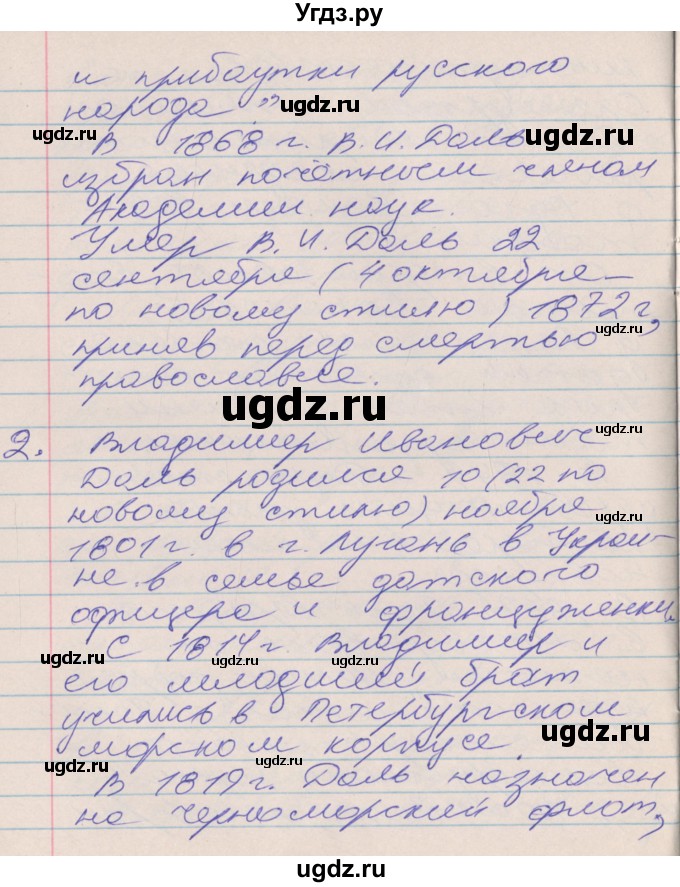 Угдз.ру
и прибаутки русского
народа."
В 1868 г. В.И. Даль
избран почётным членом
Академии наук.
Умер В.И. Даль 22
сентября (4 октября –
по новому стилю) 1872 г,
приняв перед смертью
православие.
2. Владимир Иванович
Даль родился 10 (22 по
новому стилю) ноября
1801 г. в г. Лугань в Украи-
не в семье датского
офицера и француженки.
С 1814 г. Владимир и
его младший брат
учились в Петербургском
морском корпусе.
В 1819 г. Даль назначен
на черноморский флот,
ugdz.ru
ugdz.ru
ugdz.ru
ugdz.ru
ugdz.ru
ugdz.ru
ugdz.ru
ugdz.ru
ugdz.ru
ugdz.ru
ugdz.ru
ugdz.ru
ugdz.ru
ugdz.ru